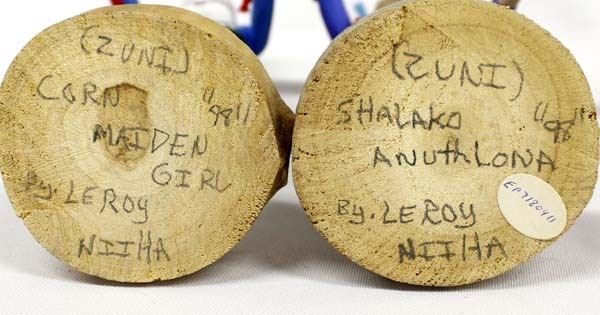 (ZUNI)
CORN "98"
MAIDEN
GIRL
By. LEROY
NIIHA
(ZUNI)
SHALAKO "98"
ANUthLONA
By. LEROY
NIIHA
EP7180411